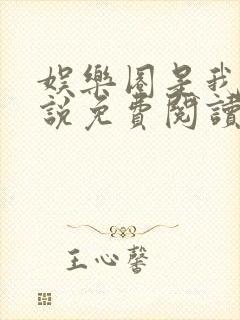 娛樂圈是我
說免費閱讀
王心馨